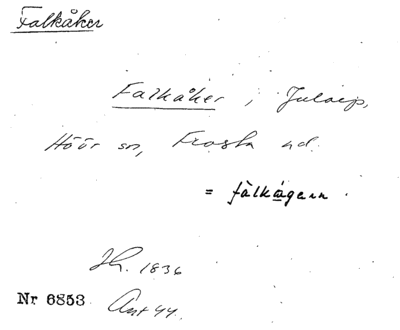 Falkåker
Falkåker i Julaep,
Höör sn, Frosta hd.
= fàlkågern.
Jh. 1836
Nr 6853. Ant 44.